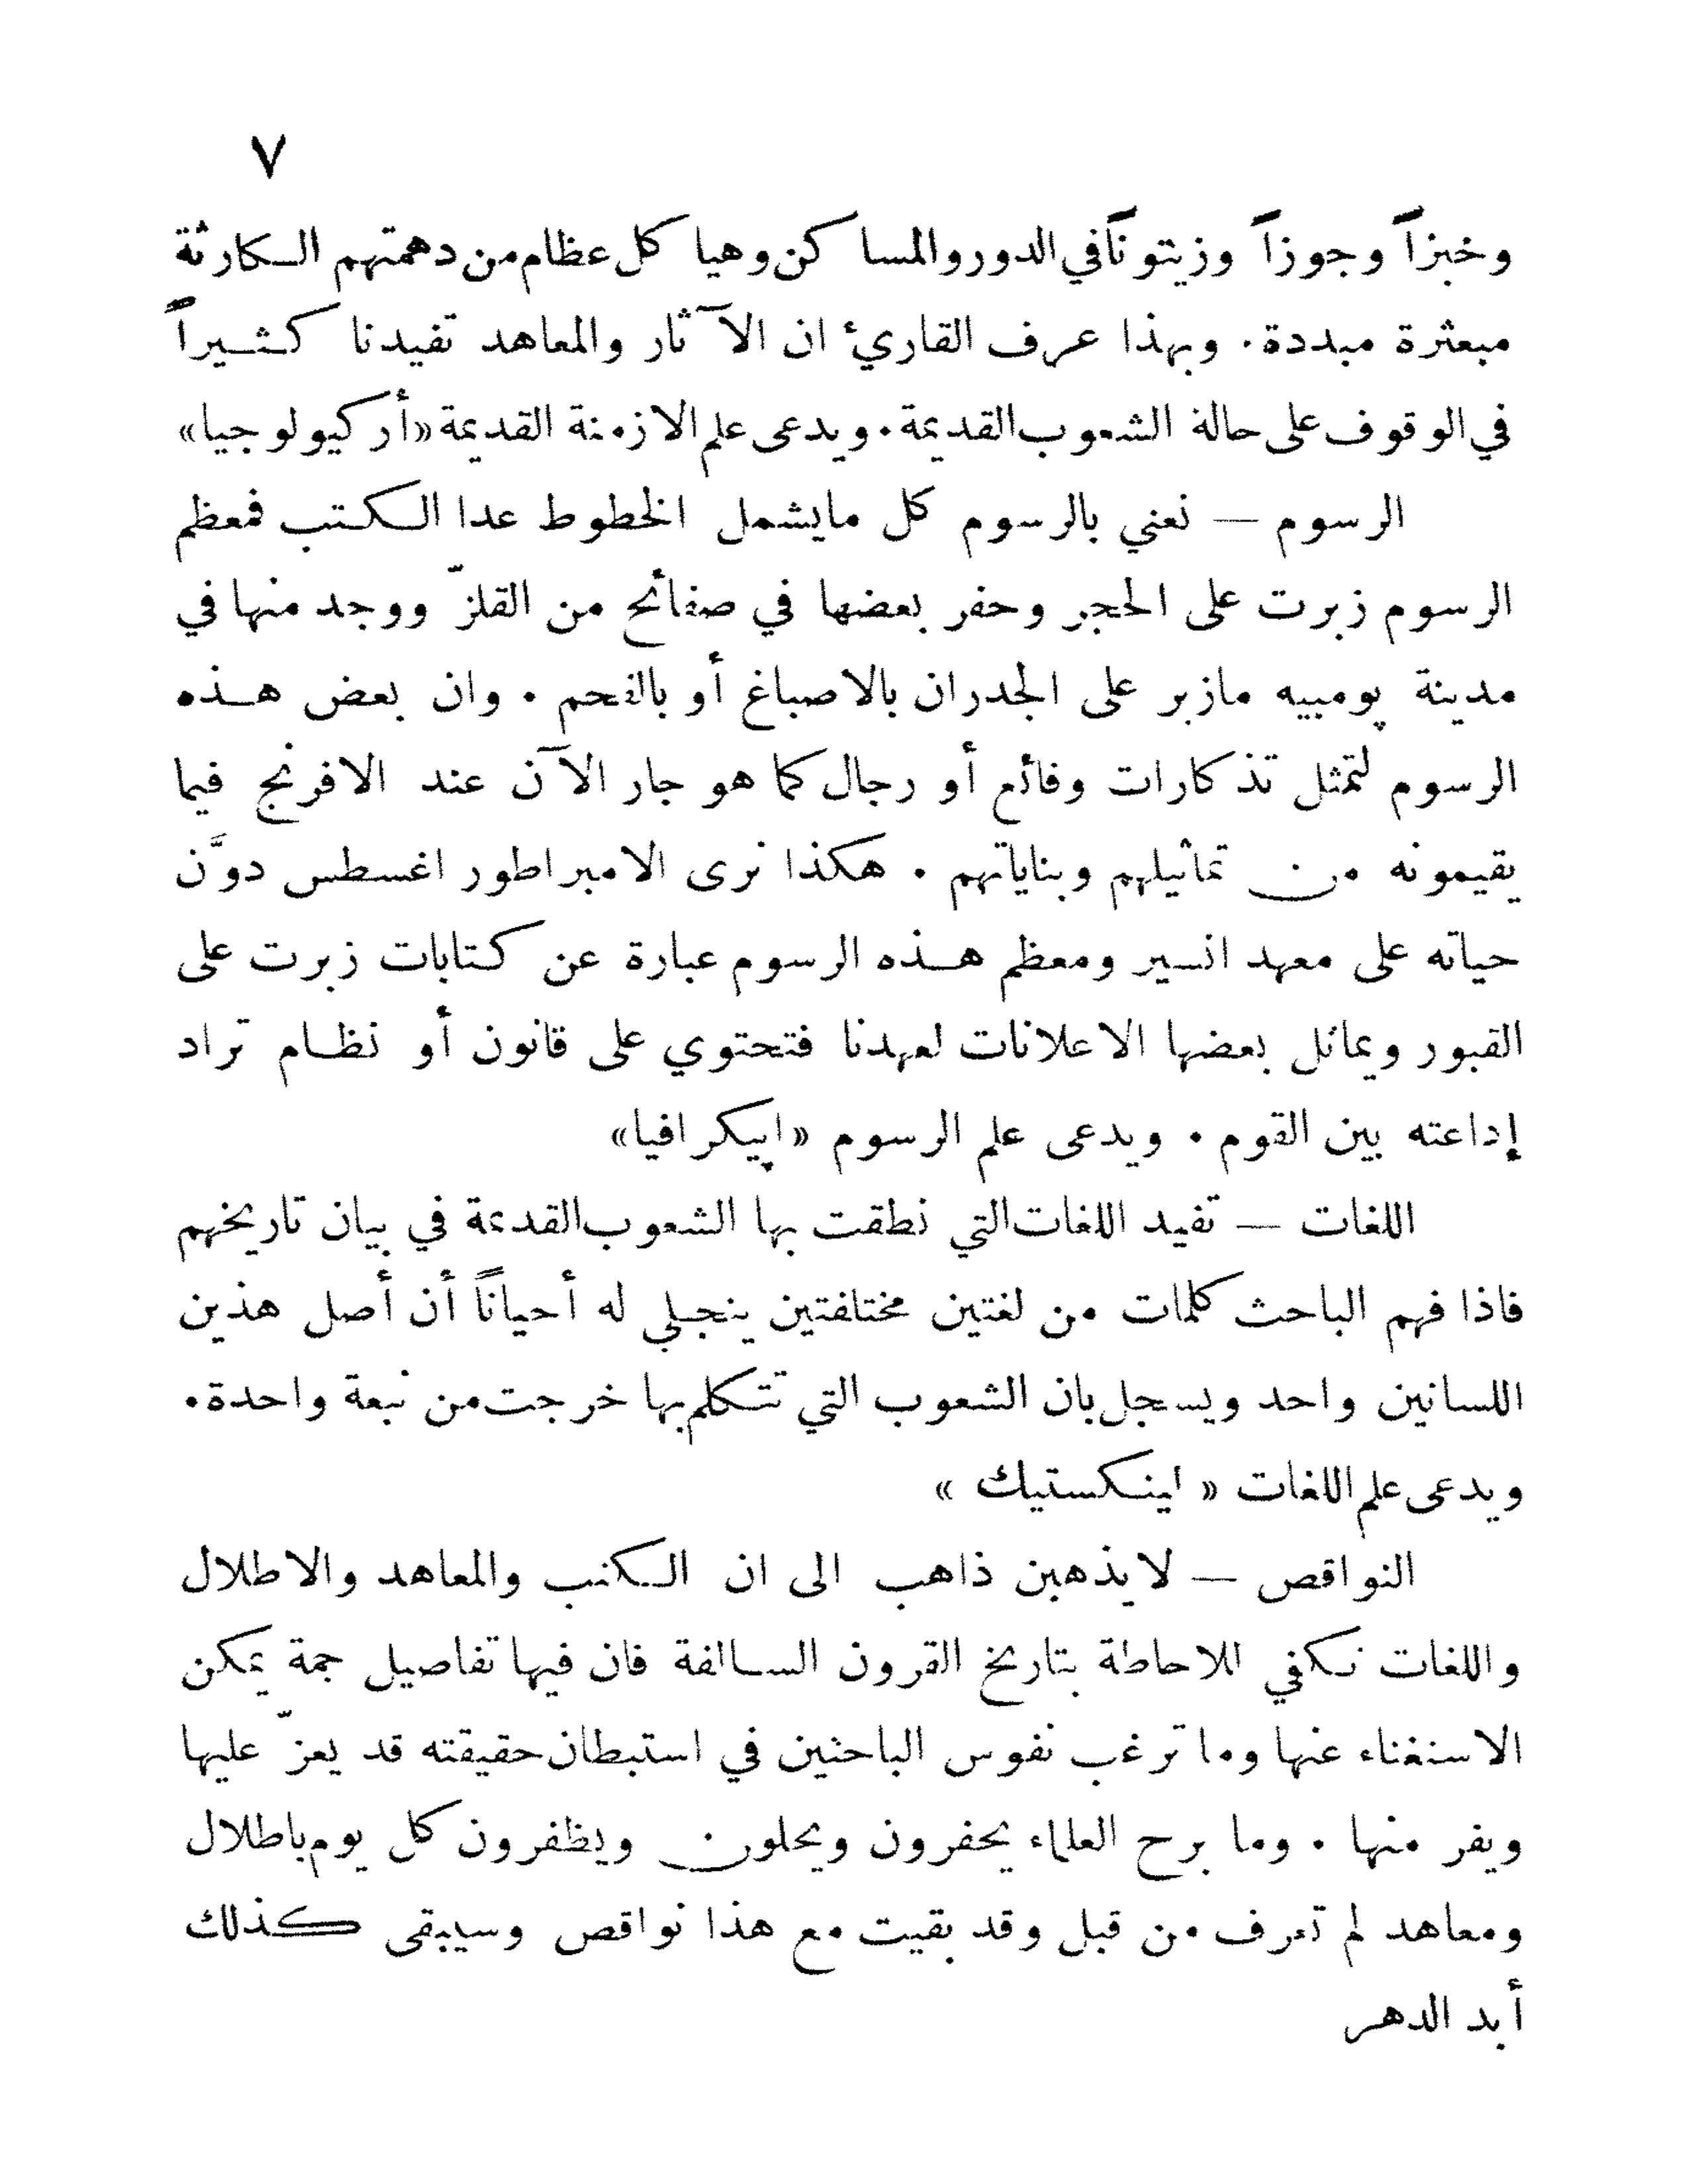 ٧
وخبزاً وجوزاً وزيتوناً في الدور والمساكن وهياكل عظام من دهمتهم الكارثة
مبعثرة مبددة. وبهذا عرف القاريء ان الآثار والمعاهد تفيدنا كثيراً
في الوقوف على حالة الشعوب القديمة. ويدعى علم الازمنة القديمة «أركيولوجيا»
الرسوم — نعني بالرسوم كل مايشمل الخطوط عدا الكتب فمعظم
الرسوم زبرت على الحجر وحفر بعضها في صفائح من القلزّ ووجد منها في
مدينة پومبيه مازبر على الجدران بالاصباغ أو بالفحم. وان بعض هذه
الرسوم لتمثل تذكارات وقائع أو رجال كما هو جار الآن عند الافرنج فيما
يقيمونه من تماثيلهم وبناياتهم. هكذا نرى الامبراطور اغسطس دوَّن
حياته على معهد انسير ومعظم هذه الرسوم عبارة عن كتابات زبرت على
القبور ويماثل بعضها الاعلانات لعهدنا فتحتوي على قانون أو نظام تراد
إداعته بين القوم. ويدعى علم الرسوم «اپيكرافيا»
اللغات — تفيد اللغات التي نطقت بها الشعوب القديمة في بيان تاريخهم
فاذا فهم الباحث كلمات من لغتين مختلفتين ينجلي له أحياناً أن أصل هذين
اللسانين واحد ويسجل بان الشعوب التي تتكلم بها خرجت من نبعة واحدة.
ويدعى علم اللغات « لينكستيك »
النواقص — لايذهبن ذاهب الى ان الكتب والمعاهد والاطلال
واللغات تكفي للاحاطة بتاريخ القرون السالفة فان فيها تفاصيل جمة يمكن
الاستغناء عنها وما ترغب نفوس الباحثين في استبطان حقيقته قد يعزّ عليها
ويفر منها. وما برح العلماء يحفرون ويحلون ويظفرون كل يوم باطلال
ومعاهد لم تعرف من قبل وقد بقيت مع هذا نواقص وسيبقى كذلك
أبد الدهر